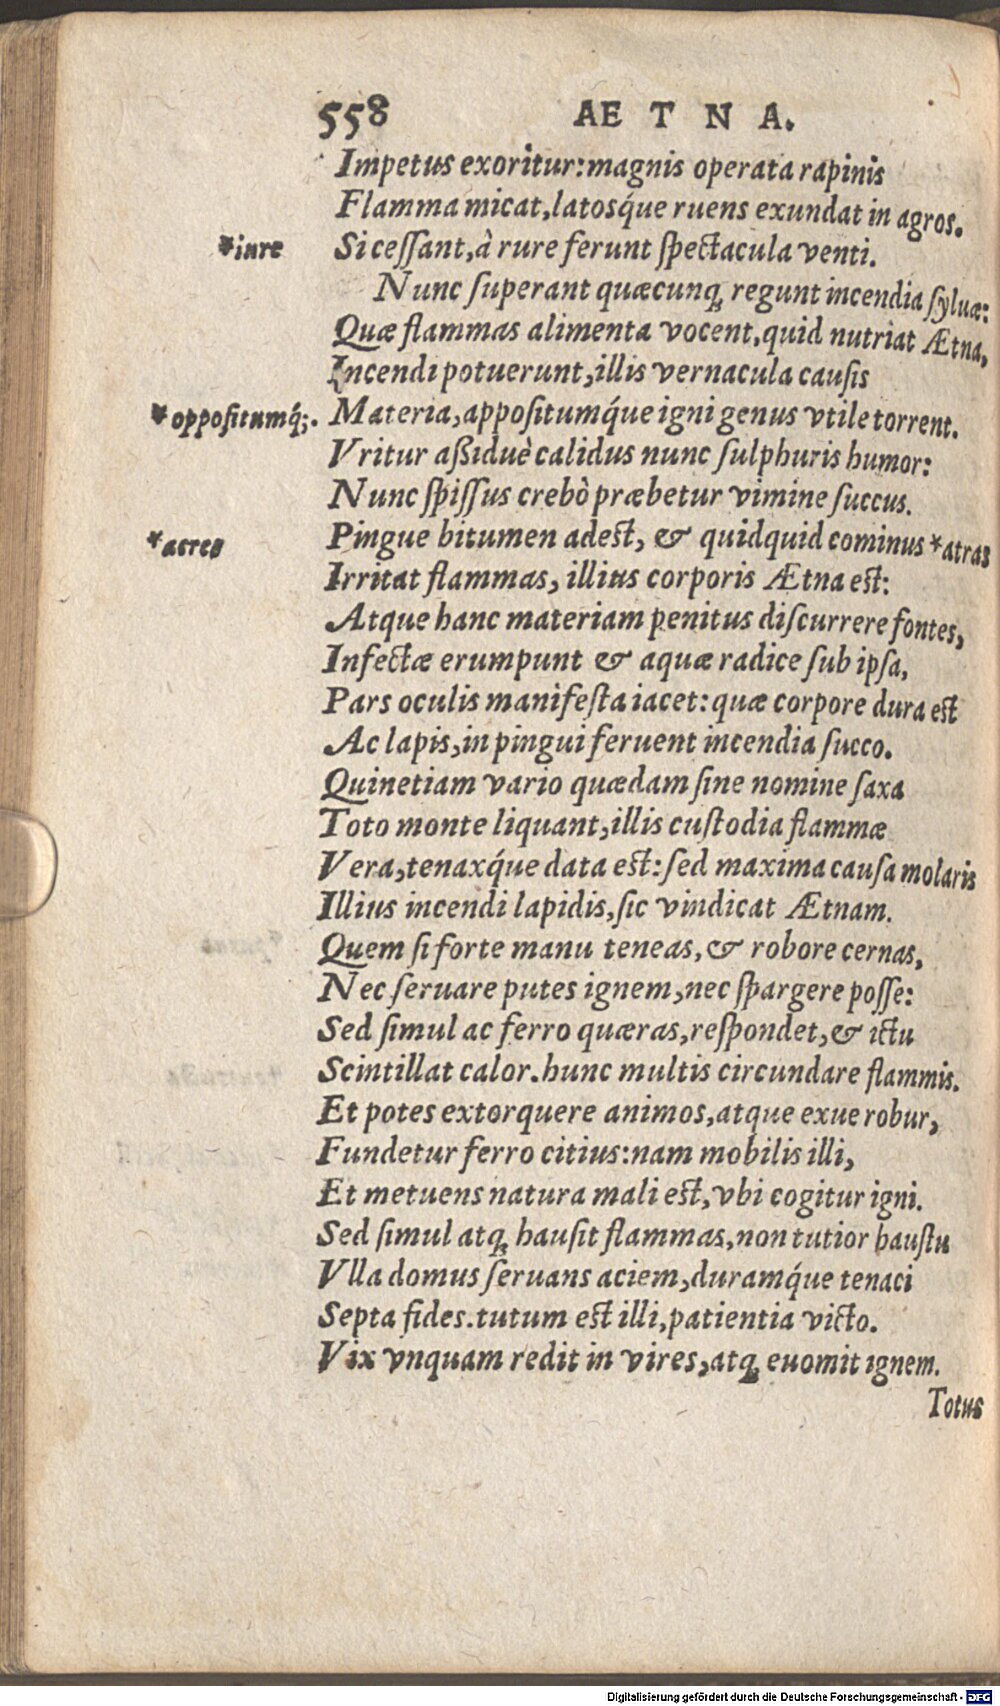 558 AETNA.
Impetus exoritur: magnis operata rapinis
Flamma micat, latosq́ue ruens exundat in agros.
*iure Si cessant, à rure ferunt spectacula venti.
Nunc superant quæcunq; regunt incendia syluæ:
Quæ flammas alimenta vocent, quid nutriat Ætna,
Incendi potuerunt, illis vernacula causis
*oppositumq́;. Materia, appositumq́ue igni genus vtile torrent.
Vritur aßiduè calidus nunc sulphuris humor:
Nunc spissus crebò præbetur vimine succus.
*acres Pingue bitumen adest, & quidquid cominus *atras
Irritat flammas, illius corporis Ætna est:
Atque hanc materiam penitus discurrere fontes,
Infectæ erumpunt & aquæ radice sub ipsa,
Pars oculis manifesta iacet: quæ corpore dura est
Ac lapis, in pingui feruent incendia succo.
Quinetiam vario quædam sine nomine saxa
Toto monte liquant, illis custodia flammæ
Vera, tenaxq́ue data est: sed maxima causa molaris
Illius incendi lapidis, sic vindicat Ætnam.
Quem si forte manu teneas, & robore cernas,
Nec seruare putes ignem, nec spargere posse:
Sed simul ac ferro quæras, respondet, & ictu
Scintillat calor. hunc multis circundare flammis.
Et potes extorquere animos, atque exue robur,
Fundetur ferro citius: nam mobilis illi,
Et metuens natura mali est, vbi cogitur igni.
Sed simul atq; hausit flammas, non tutior haustu
Vlla domus seruans aciem, duramq́ue tenaci
Septa fides. tutum est illi, patientia victo.
Vix vnquam redit in vires, atq; euomit ignem.
Totus
Digitalisierung gefördert durch die Deutsche Forschungsgemeinschaft - DFG